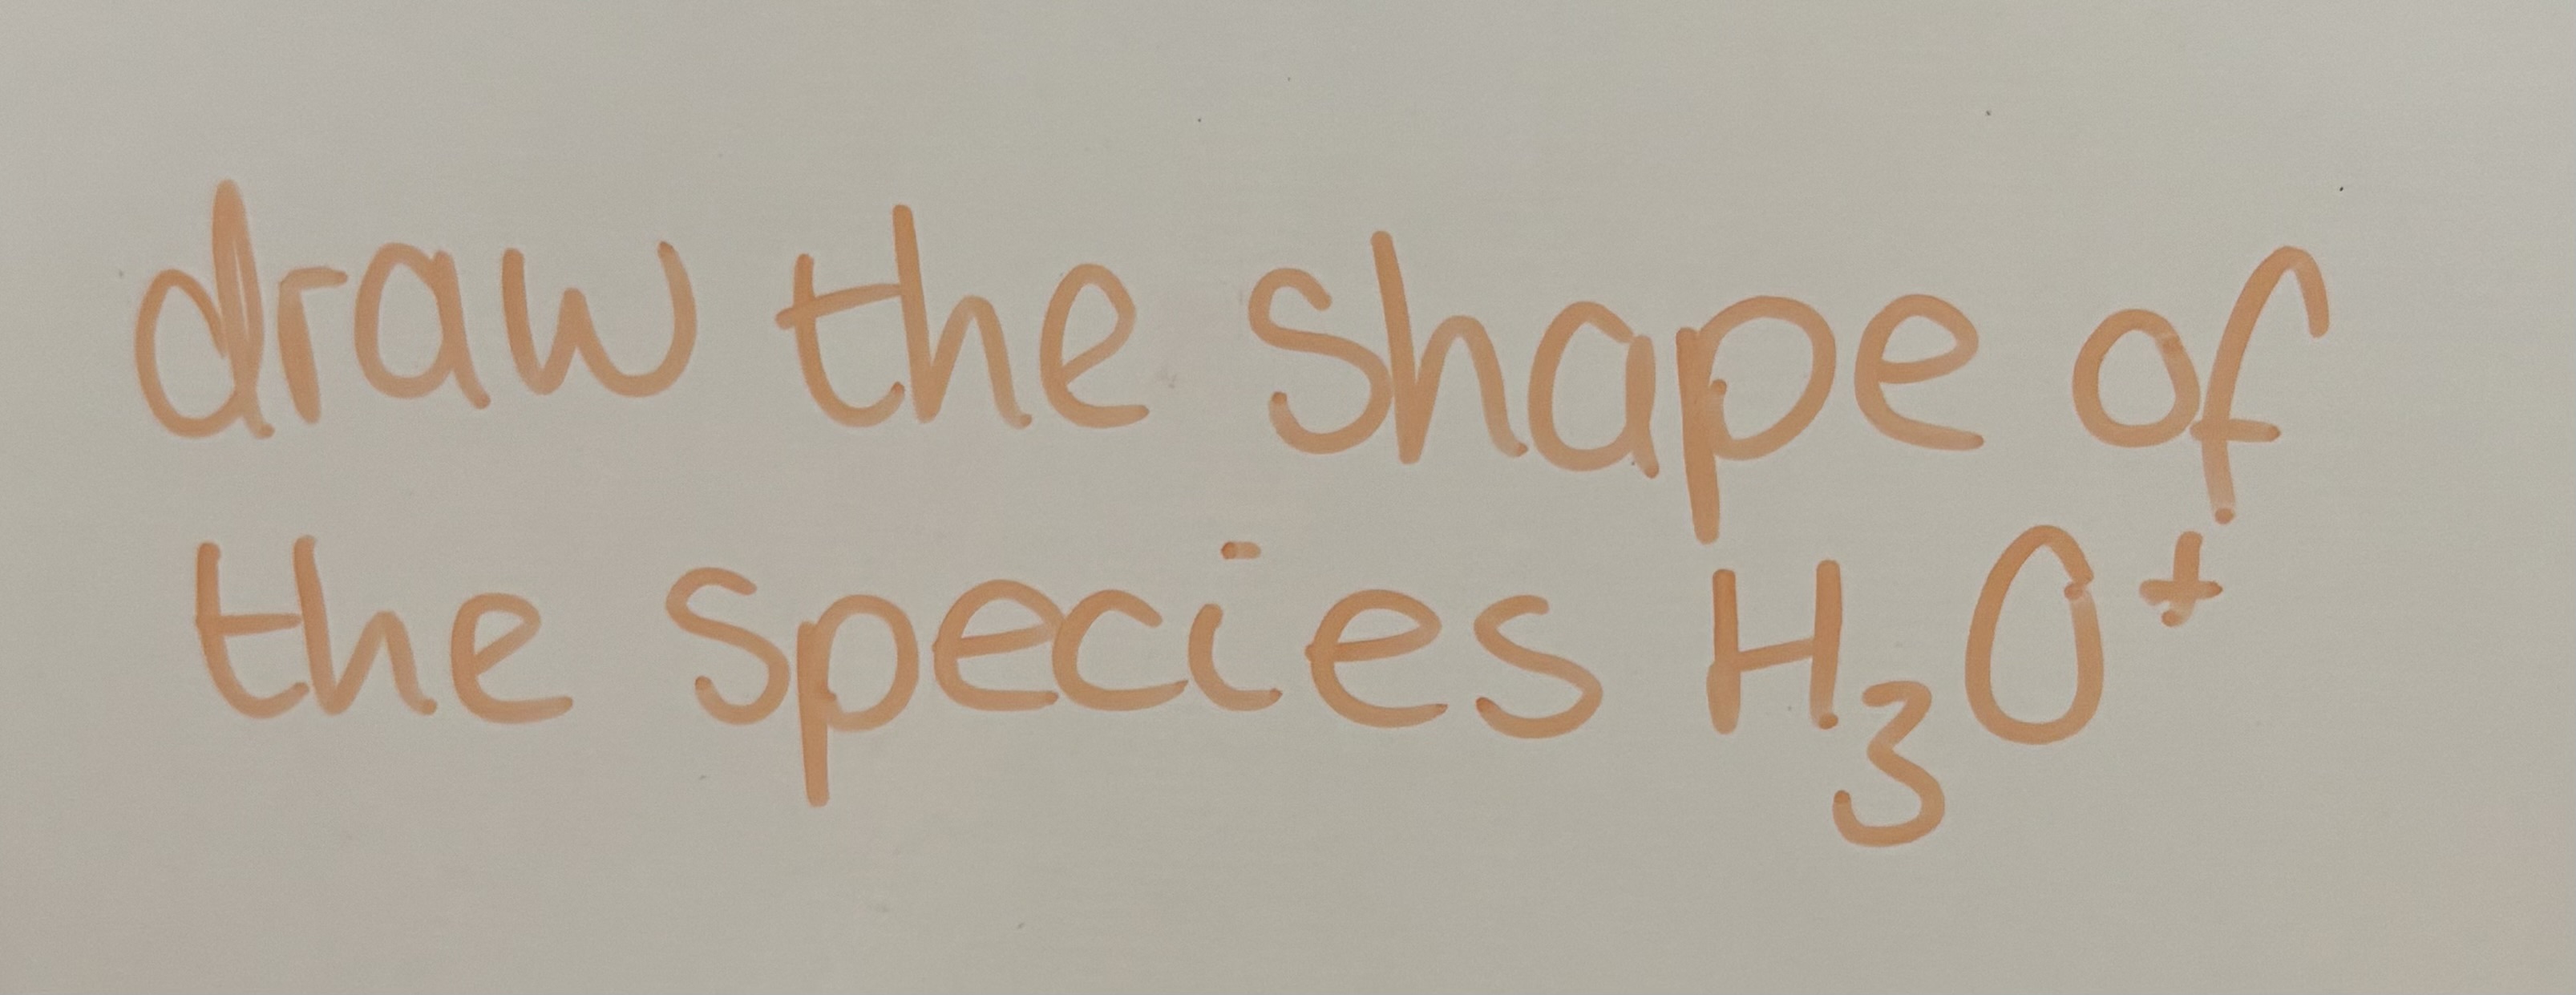 draw the shape of
the species H₃O⁺